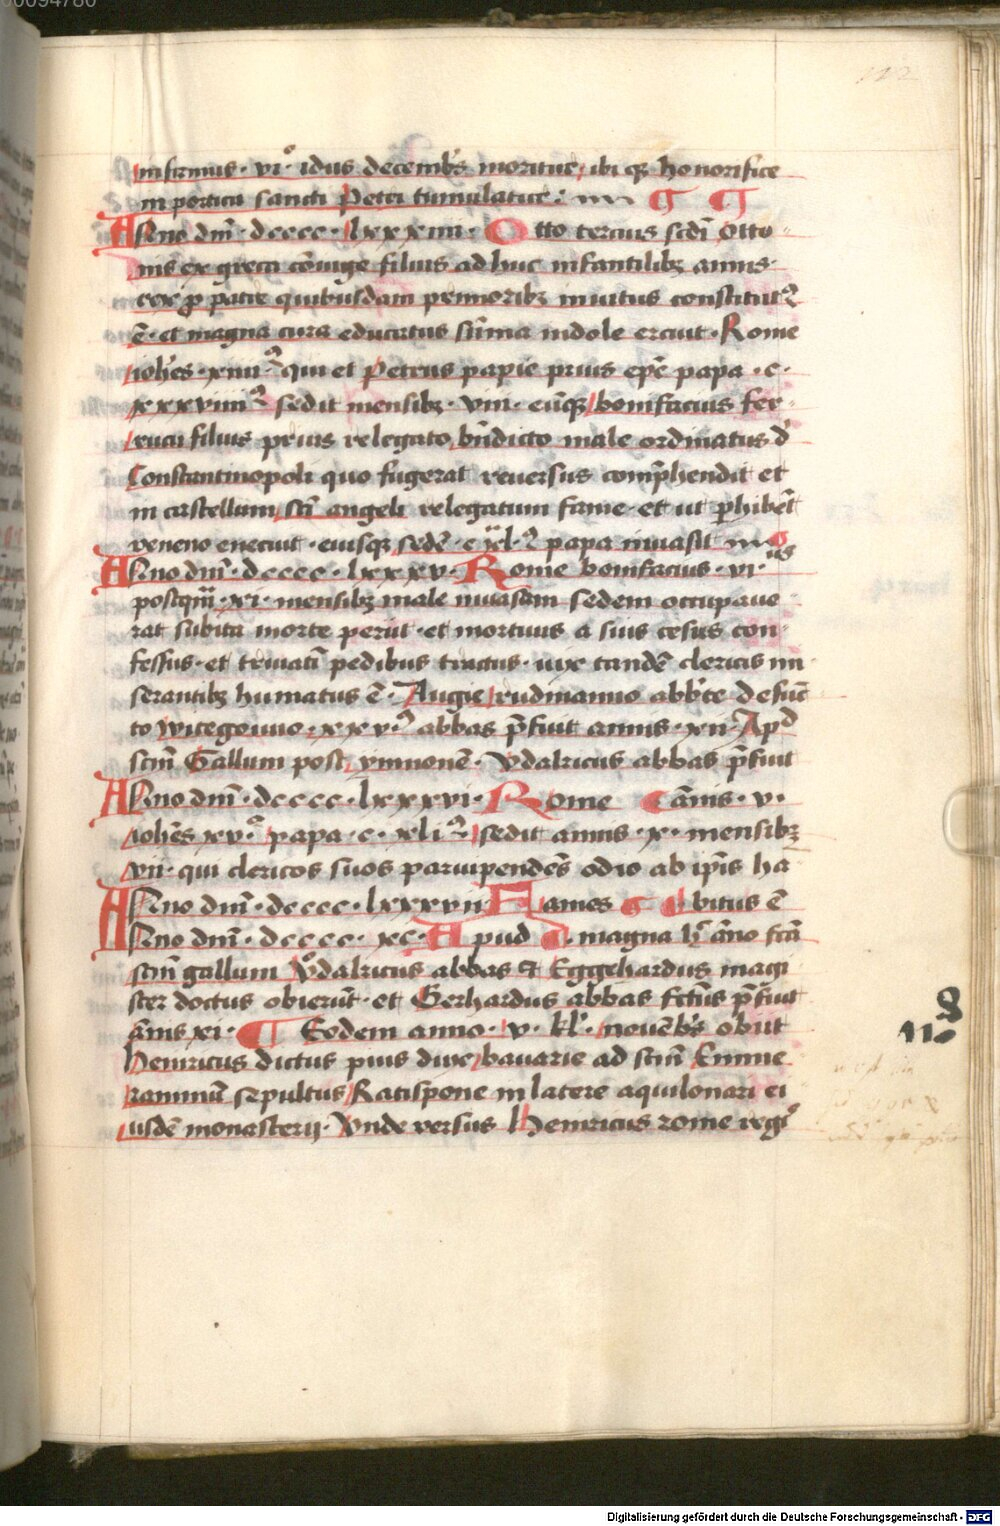 00094780
112
infirmus · vi° idus decembr̄s moritur, ibi q̄ȝ honorifice
in porticu sancti Petri tumulatur :
Anno dn̄i · dcccc · lxxxiiii · Otto tercius sc̄di Otto
nis ex greca cōiuge filius ad huc infantilibȝ annis ·
rex p̱ patre quibusdam primoribȝ inuitus constitut᷒
ē · et magna cura educatus sūma indole creuit · Rome
ioh̄es · xiiii᷒ qui et Petrus papie prius ep̄c papa · c ·
xxxviiii᷒ sedit mensibȝ · viii · eūqȝ bonifacius fer
rucii filius prius relegato bn̄dicto male ordinatus d̄
Constantinopoli quo fugerat reuersus comp̄hendit et
in castellum sc̄ti angeli relegatum fame · et ut p̱hibēt
veneno enecuit · eiusqȝ sedē · c · xl · papa inuasit
Anno dn̄i · dcccc · lxxxv · Rome bonifacius · vi · us
postq̄m · xi · mensibȝ male inuasam sedem occupaue
rat subita morte periit · et mortuus a suis cesus con
fessus · et truncati pedibus tractus · uix tandē clericis mi
serantibȝ humatus ē · Augie rudmanno abb̄te defūc
to witegouuo · xxv᷒ abbas p̄fuit annis · xii · Apd
sc̄m Gallum post ymmonē · Vdalricus abbas p̄fuit
Anno dn̄i · dcccc · lxxxvi · Rome ānis · v ·
ioh̄es xv° · papa · c · xli᷒ · sedit annis · x · mensibȝ
vii · qui clericos suos paruipendēs odio ab ip̄is ha
Anno dn̄i · dcccc · lxxxvii Fames bitus ē
Anno dn̄i · dcccc · xc · Apud · magna h̄ āno fc̄a
sc̄m gallum Vᵒdalricus abbas et Eggehardus magi
ster doctus obierūt · et Gerhardus abbas fc̄us p̄fuit
ānis xi · Eodem anno · v · kl̄ · nouēbr̄s obiit
Heinricus dictus pius dux bauarie ad sc̄m Emme
rammū sepultus Ratispone in latere aquilonari ei
usdē monasterij · Vnde versus Heinricus rome reg᷒
8
Digitalisierung gefördert durch die Deutsche Forschungsgemeinschaft - DFG